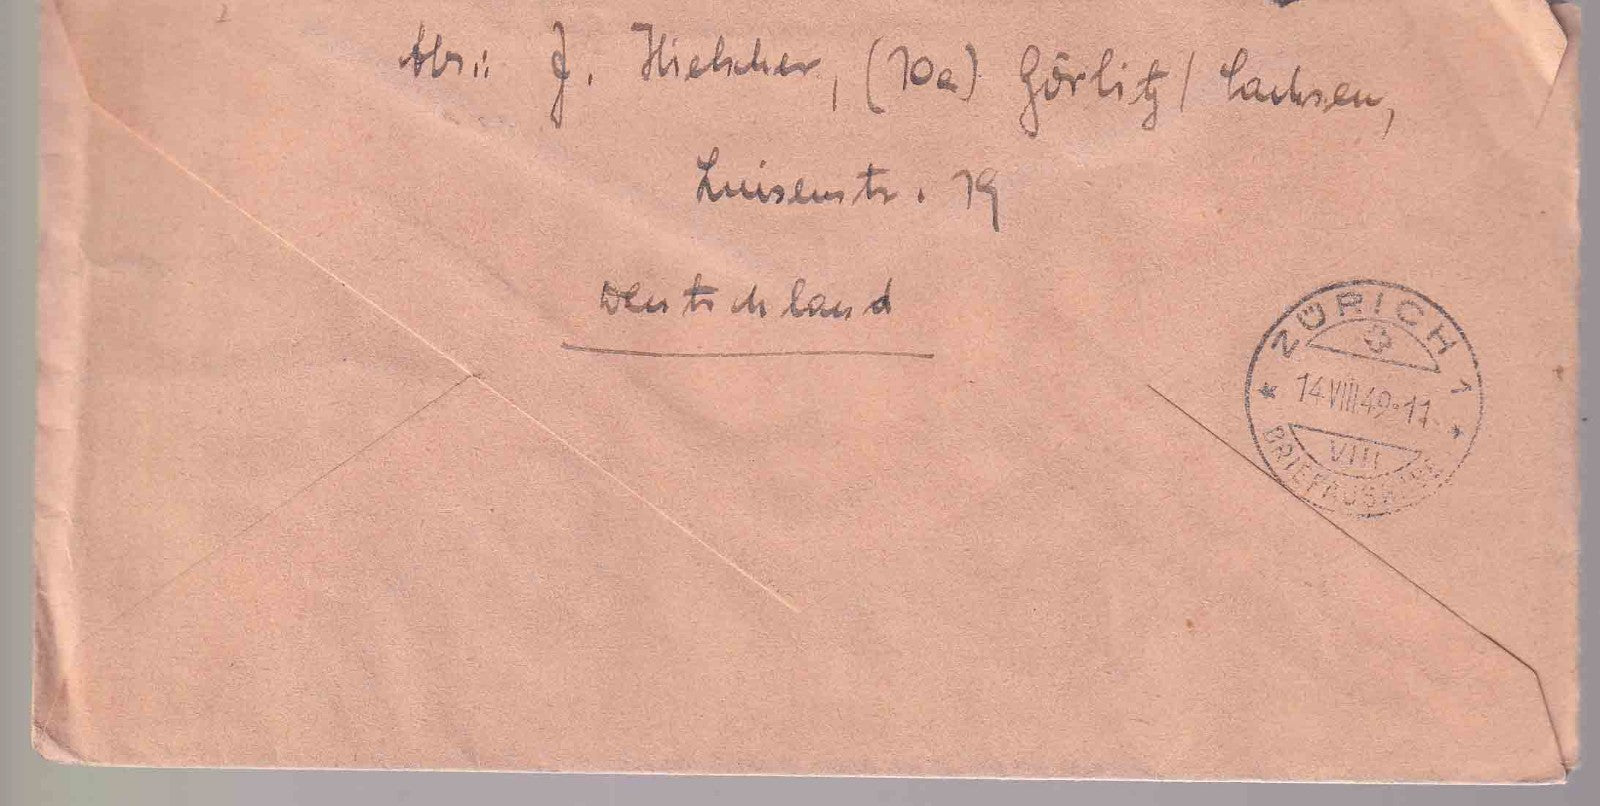 Abs.: J. Hielscher, (10a) Görlitz / Sachsen,
Luisenstr. 19
Deutschland
ZÜRICH 1
14.VIII.49-11
VIII
BRIEFAUSG